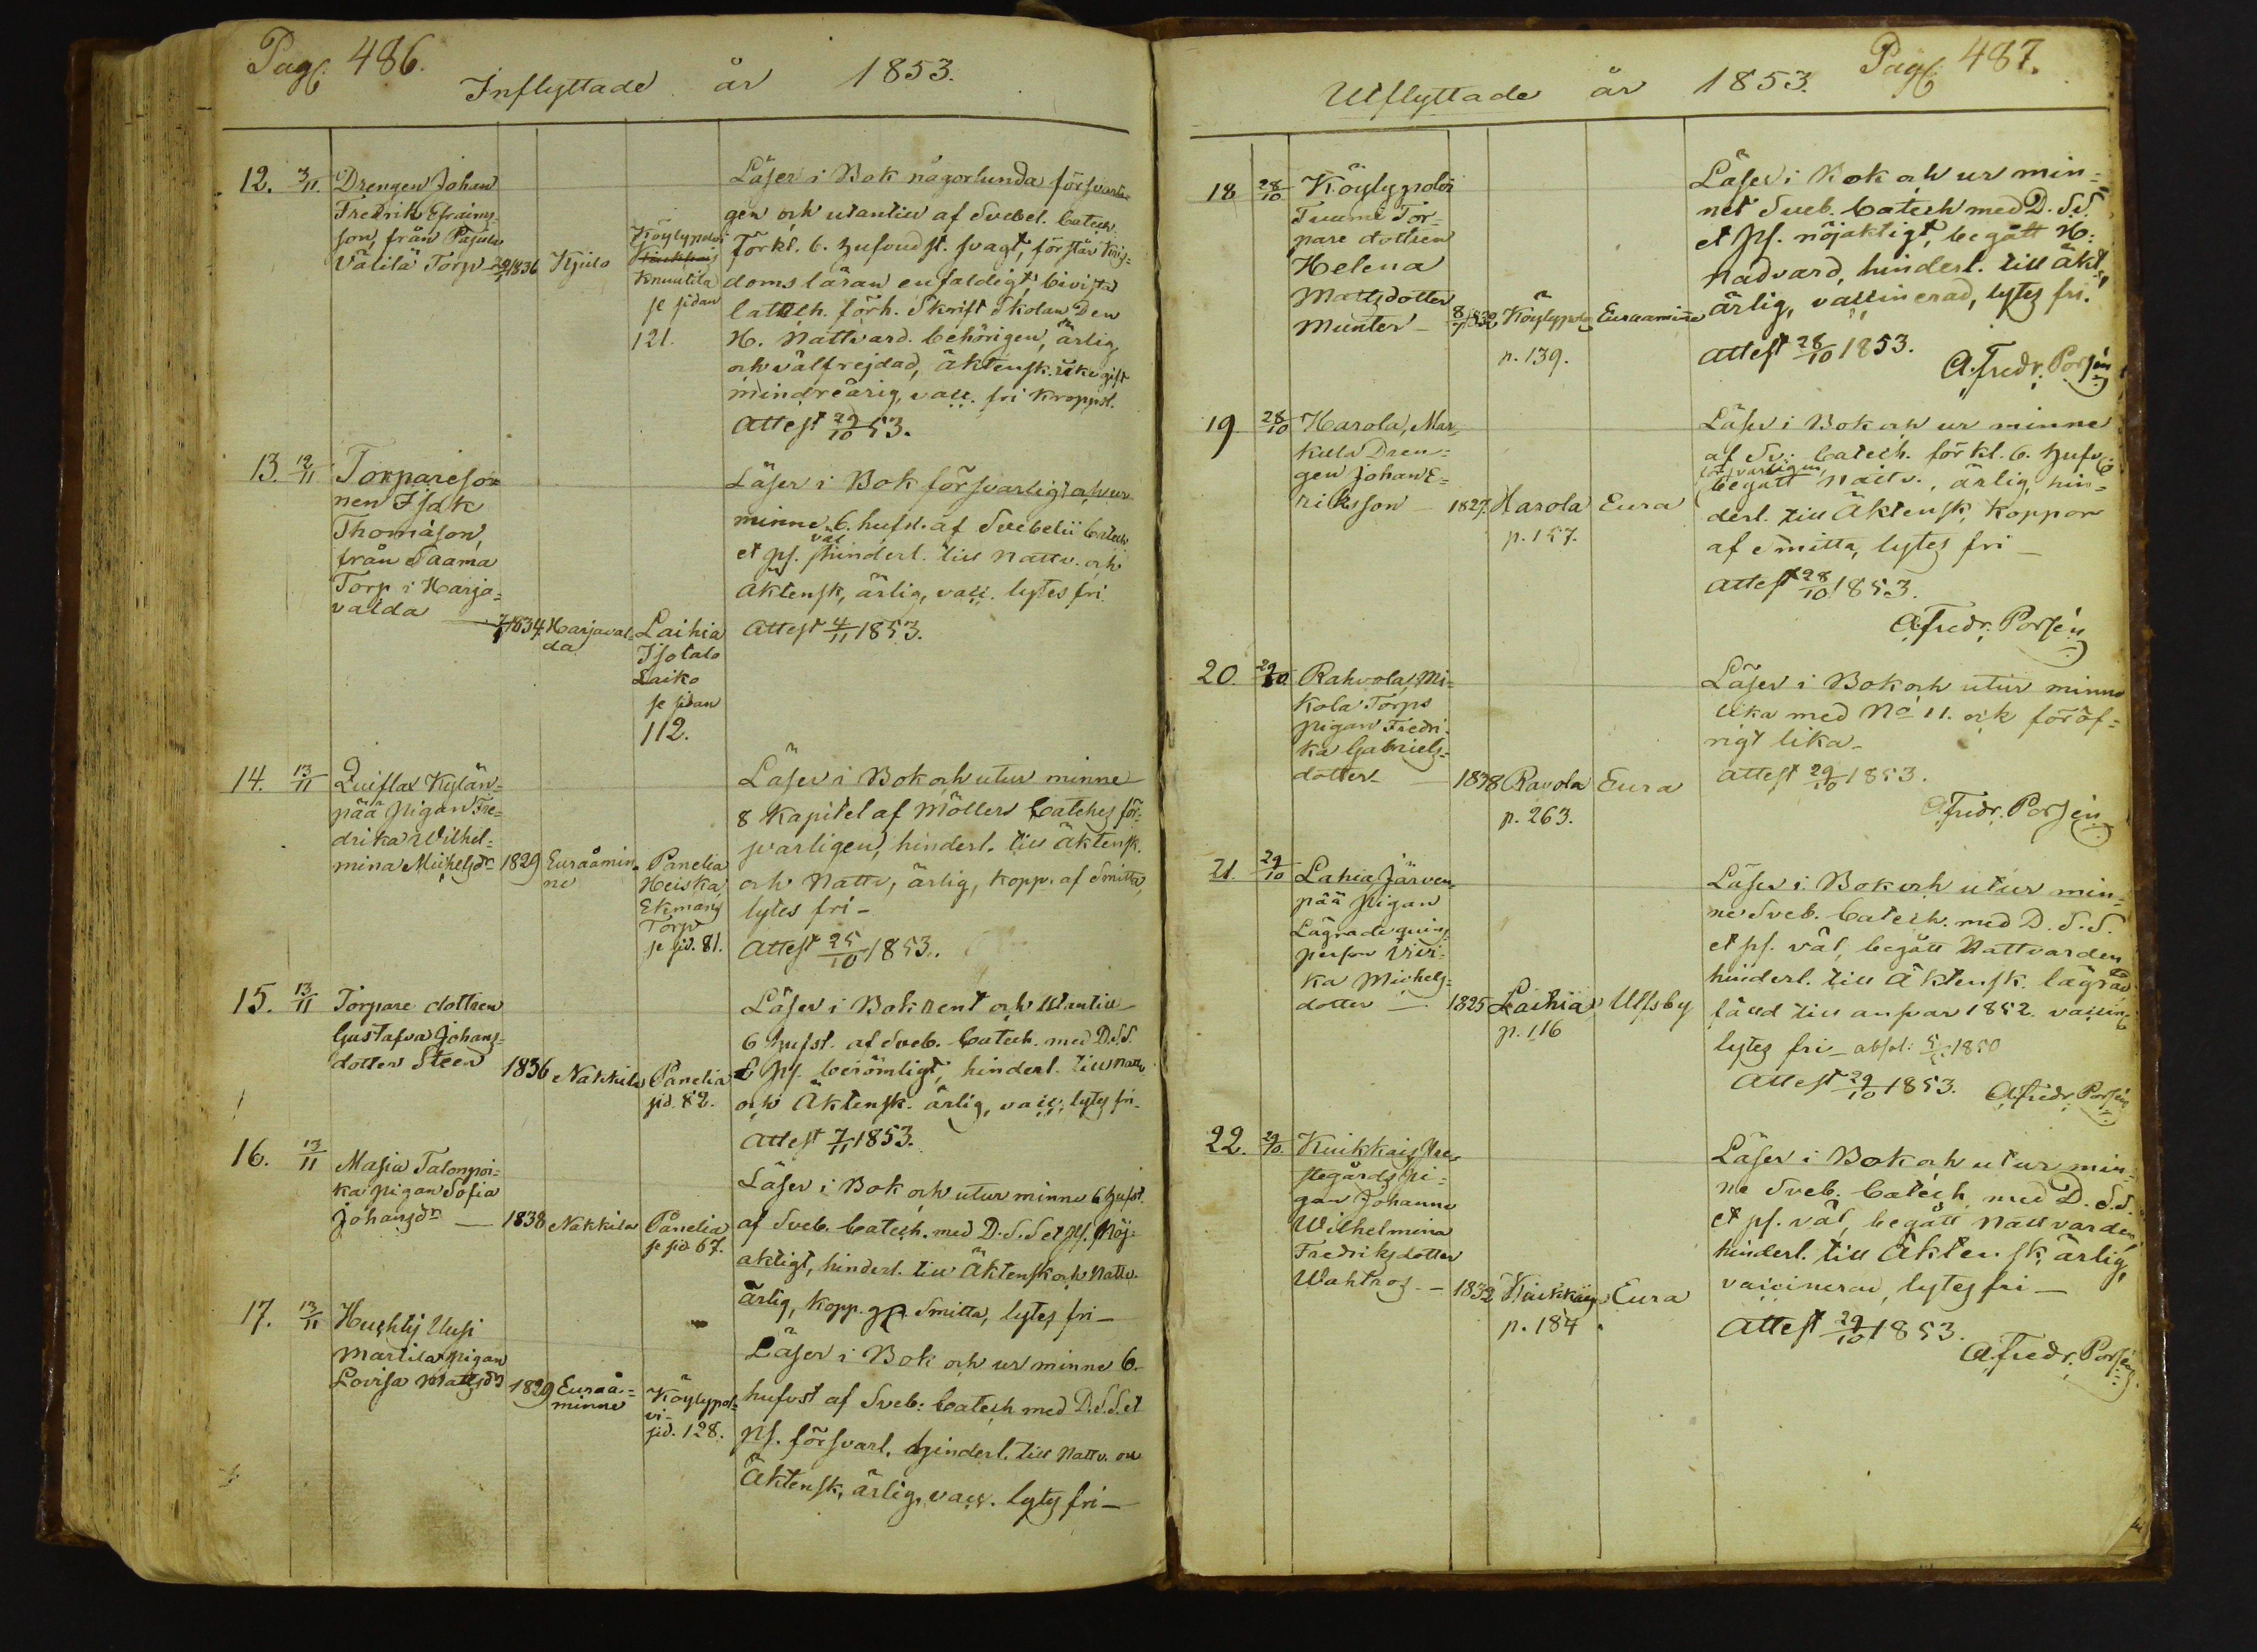 Pag: 486.
Inflyttade år 1853.
12. 3/11. Drengen Johan
Fredrik Efraims-
son, från Pajula
Välilä Torp 1836 Kjulo
Köylypolvi
Knuutila
se sidan
121.
Läser i Bok någorlunda försvarli-
gen och utantill af Svebel. Catech.
Förkl. 6. hufvudst. svagt, förstår Kris-
doms läran enfaldigt, bivistat
Catech. förh. Skrift Skolan Den
H. Nattvard. behörigen, ärlig
och välfrejdad, äktensk.
mindreårig, vacc. fri kroppsl.
Attest 29/10 53.
13. 12/11 Torpareso-
nen Isak
Thomason,
från Saama
Torp i Harja-
valda 1834. Harjaval-
da
Laihia
Isotalo
Laiko
se sidan
112.
Läser i Bok försvarligt och ur
minne 6. hufst. af Svebelii Catech.
et ps. väl hinderl. till Nattv. och
Äktensk, ärlig, vacc. lytes fri.
Attest 4/11 1853.
14. 13/11 Luislax Kylän-
pää pigan Fre-
drika Wilhel-
mina Michelsdr 1829 Euraåmin-
ne
Panelia
Heiska
Ekmans
Torp
se sid. 81.
Läser i Bok och utur minne
8 Kapitel af Möllers Cateches för-
svarligen, hinderl. till äktensk.
och Nattv, ärlig, kopp. af Smitta,
lytes fri –
Attest 25/10 1853.
15. 13/11 Torpare dottren
Gustafva Johans-
dotter Steen 1836 Nakkila Panelia
sid. 82.
Läser i Bok rent och utantill
6 hufst. af Sveb. Catech. med D.S.S.
et ps. berömligt, hinderl. till Nattv.
och Äktensk. ärlig, vacc. lytes fri.
Attest 7/11 1853.
16. 13/11 Masia Talonpoi-
ka pigan Sofia
Johansdr — 1838 Nakkila Panelia
se sid. 67.
Läser i Bok och utur minne 6 hufst.
af Sveb. Catech. med D.S.S et ps. Nöj-
aktigt, hinderl. till Äktensk och Nattv.
ärlig, kopp. gr. Smitta, lytes fri –
17. 13/11 Huchtis Uusi
Martila pigan
Lovisa Mattsdr 1829 Euraå-
minne
Köylypol-
vi-
sid. 128.
Läser i Bok och ur minne 6.
hufvst af Sveb: Catech med D.S.S. et
ps. försvarl. hinderl. till Nattv. och
Äktensk, ärlig, vacc. lytes fri –
Pag: 487.
Utflyttade år 1853.
18 28/10 Köylypolvi
Tuumi Tor-
pare dottren
Helena
Mattsdotter
Munter – 8/7 1832 Köylypolvi Euraaminne
p. 139.
Läser i Bok och ur min-
net Sveb. Catech med D.S.S.
et ps. nöjaktigt, begått H:
Nadvard, hinderl. till äkt,
ärlig, vaccinerad, lytes fri.
attest 28/10 1853.
A. Fredr. Porsén
19. 28/10 Harola, Mar-
kula Dren-
gen Johan E-
riksson – 1827. Harola Eura
p. 157.
Läser i Bok och ur minne
af Sv: Catech. förkl. 6. hufv.
försvarligen
begått Nattv., ärlig, hin-
derl. till Äktensk, Koppor
af Smitta, lytes fri –
attest 28/10 1853.
A. Fredr. Porsén
20. 29/10 Rahvola, Mi-
kola Torps
pigan Fredri-
ka Gabriels-
dotter – 1838 Ravola Eura
p. 263.
Läser i Bok och utur minne
lika med No 11. och föröf-
rigt lika –
attest 29/10 1853.
A Fredr. Porsén
21. 29/10 Lahia Järven-
pää pigan
Lägrade quins
person Ulri-
ka Michels-
dotter — 1825 Laihia Ulfsby
p. 116
Läser i Bok och utur min-
ne Sveb. Catech. med D.S.S.
et ps. väl, begått Nattvarden
hinderl. till Äktensk. lägrad
fälld till ansvar 1852. vaccin.
lytes fri – absol: 5/5 1850
Attest 29/10 1853. A Fredr. Porsén
22. 29/10 Kiukkais, Pre-
stegårds Pi-
gan Johanna
Wilhelmina
Fredriksdotter
Wahlros – 1832 Kiukkais Eura
p. 184.
Läser i Bok och utur min-
ne Sveb. Catech. med D.S.S.
et ps. väl, begått Nattvarden,
hinderl. till Äktensk, ärlig,
vaccinerad, lytes fri –
Attest 29/10 1853.
A. Fredr. Porsén